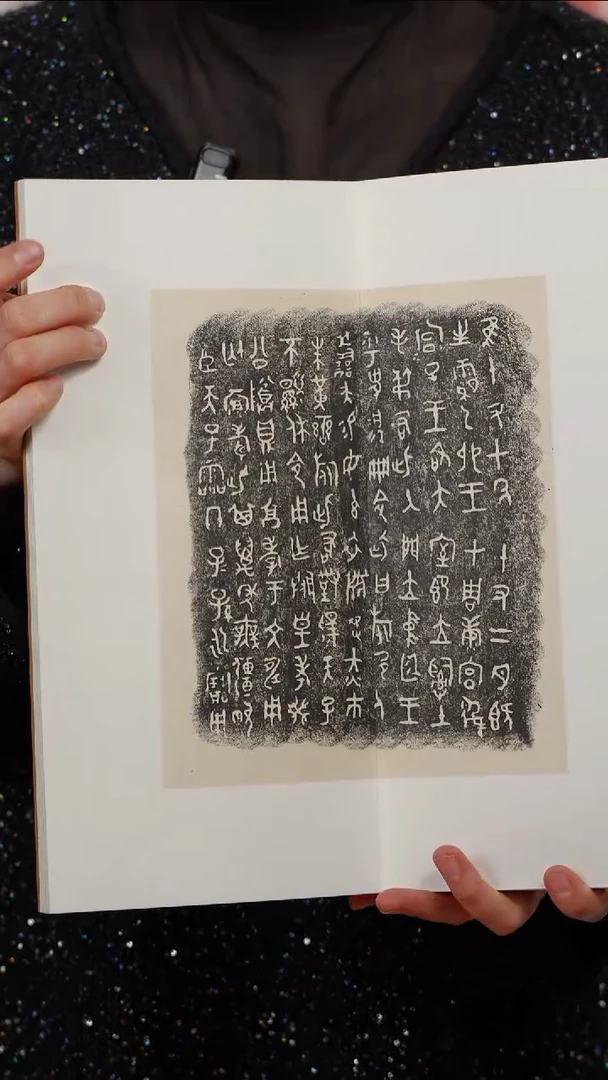 隹十又七年十又二月既
生霸乙卯王才周康宮徲
宮旦王各大室即立嗣土
毛弔右此入門立中廷王
乎史翏冊令此曰旅邑人
善夫易女玄衣黹屯赤巿
朱黃䜌旅此敢對揚天子
不顯休令用乍朕皇考癸
公尊鼎用亯孝于文申用
匄眉壽此其萬年無彊畯
臣天子霝冬子子孫永寶用